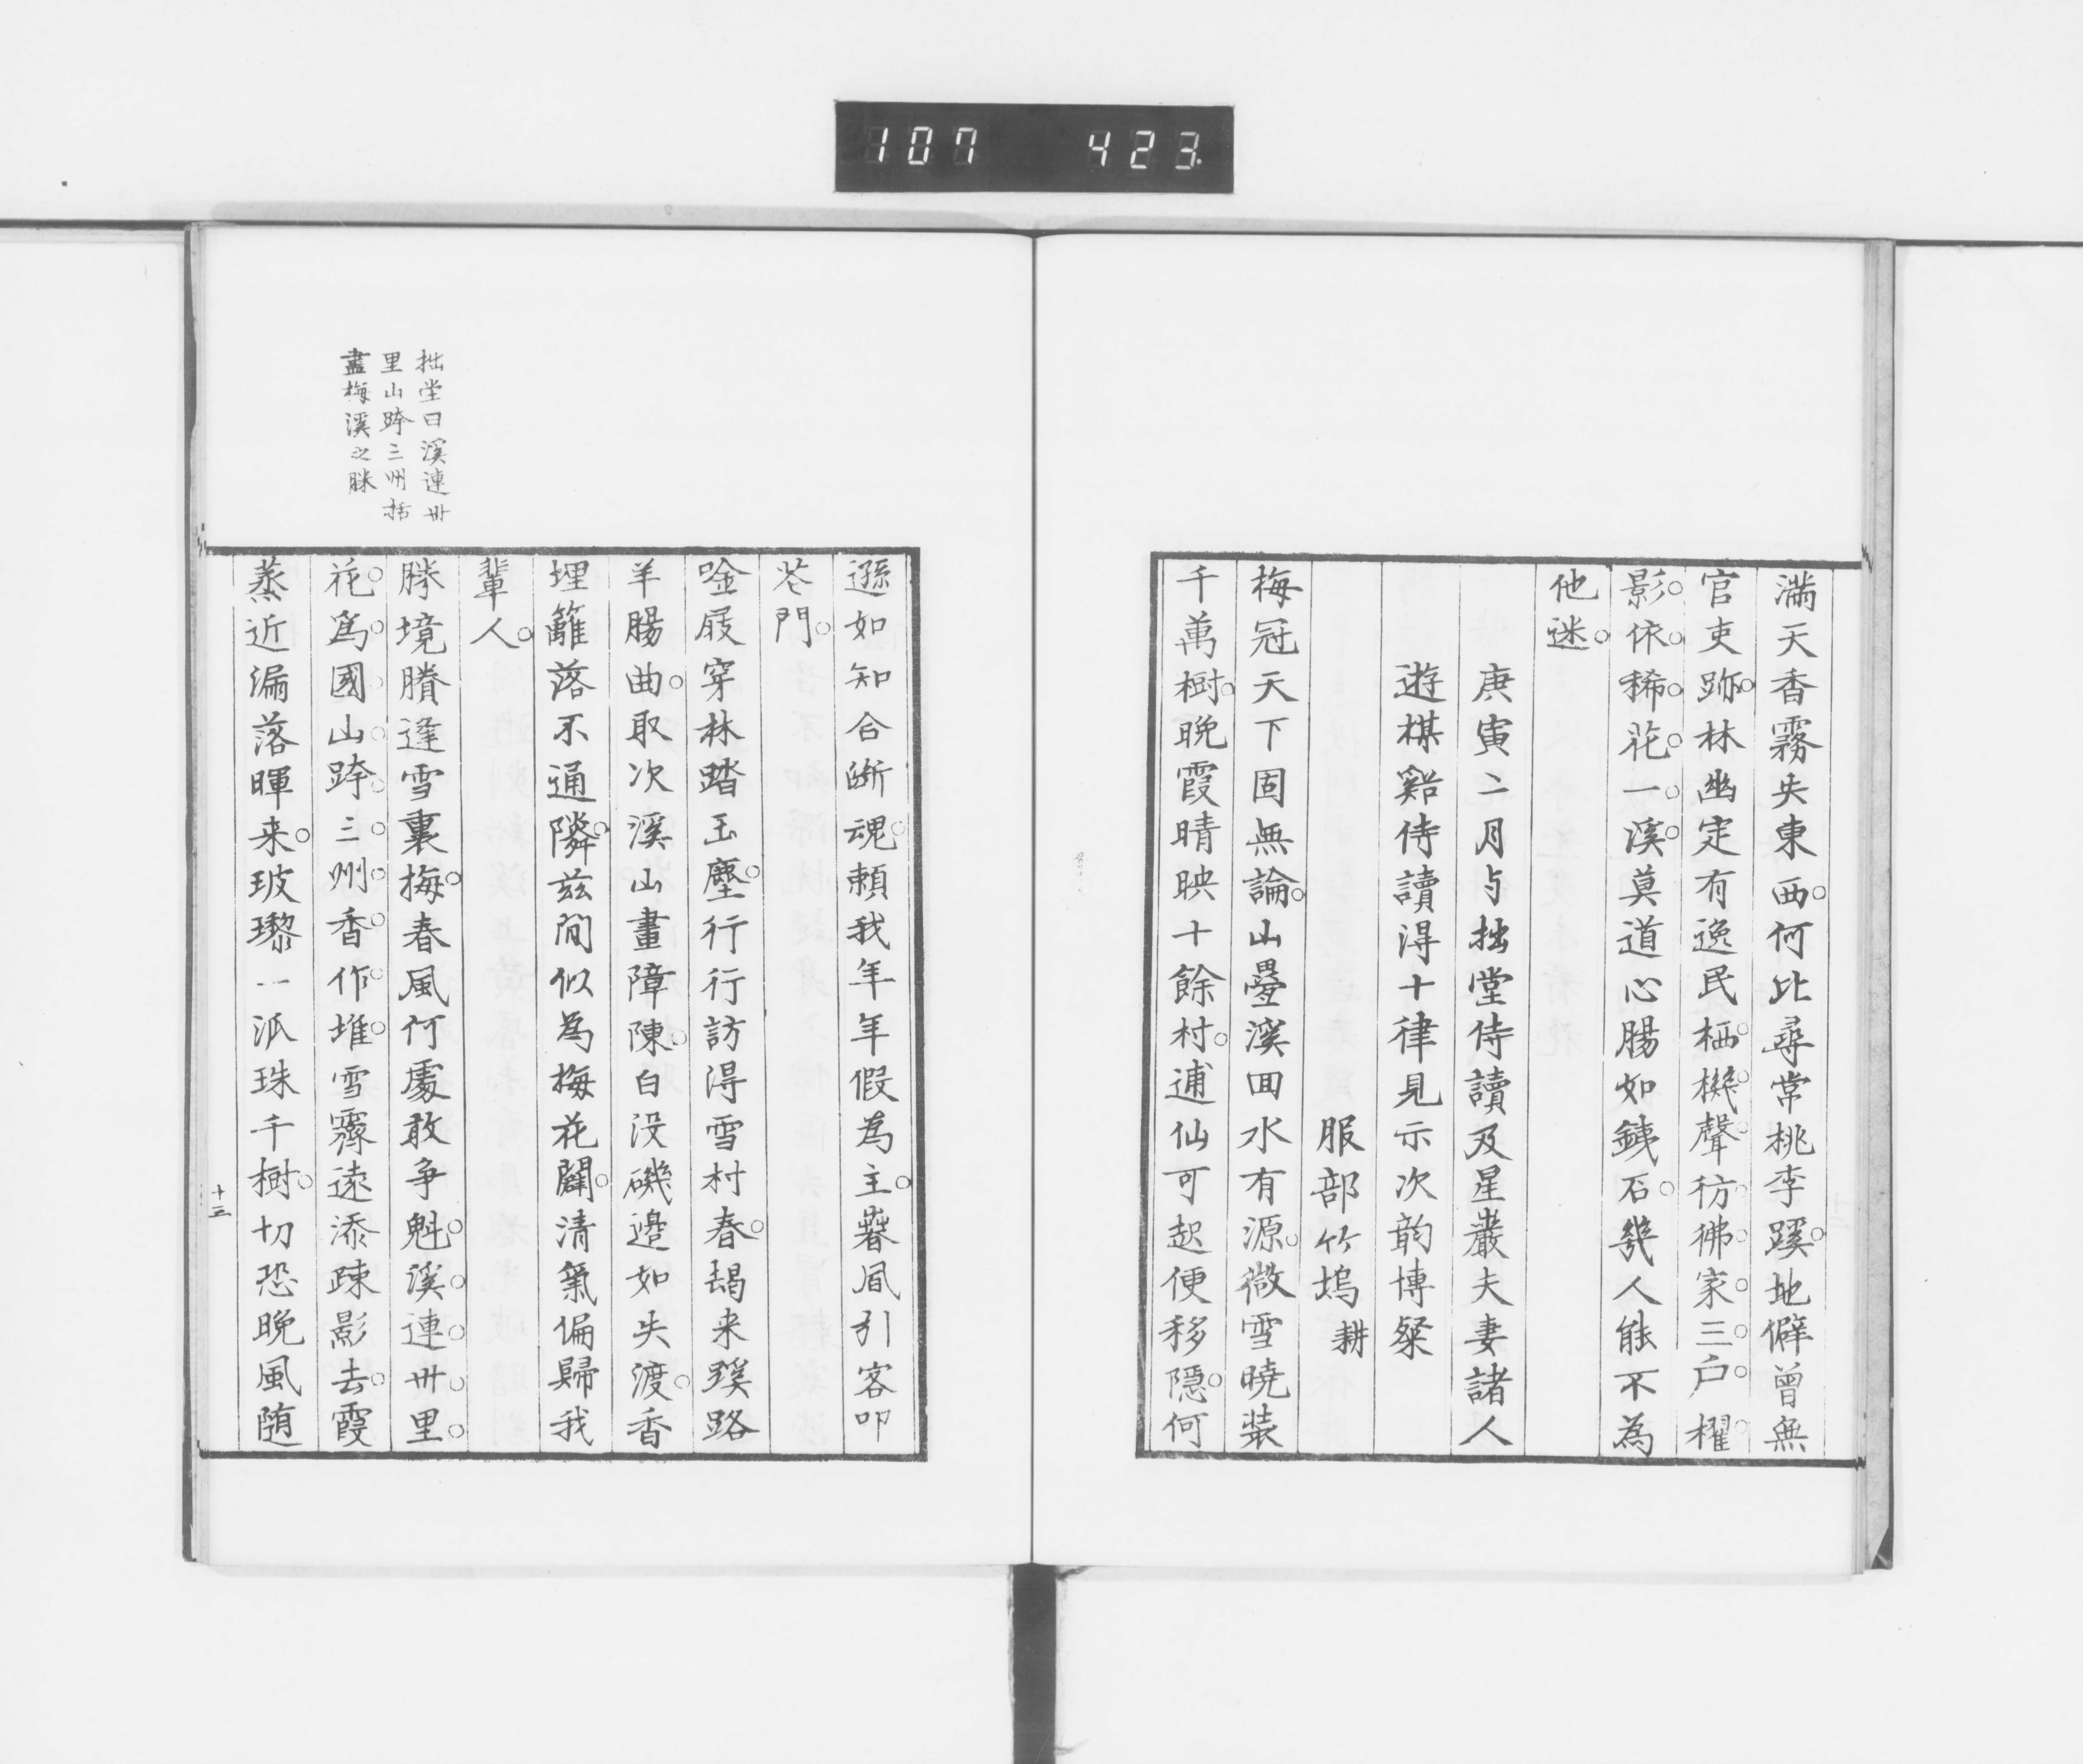 107 423
満天香霧失東西何比尋常桃李蹊地僻曾無
官吏跡林幽定有逸民栖機聲彷彿家三戸櫂
影依稀花一溪莫道心腸如銕石幾人能不為
他迷
庚寅二月与拙堂侍讀及星巖夫妻諸人
遊棋谿侍讀得十律見示次韵博粲
服部竹塢 耕
梅冠天下固無論山疊溪回水有源微雪曉装
千萬樹晩霞晴映十餘村逋仙可起便移隱何
遜如知合斷魂頼我年年假為主暮風引客叩
花門
唫屐穿林踏玉塵行行訪得雪村春朅来蹊路
羊腸曲取次溪山畫障陳白没磯邉如失渡香
埋籬落不通隣兹間似為梅花闢清氣偏歸我
輩人
拙堂曰溪連卅
里山跨三州括
盡梅溪之勝
勝境賸逢雪裏梅春風何處敢爭魁溪連卅里
花爲國山跨三州香作堆雪霽遠添疎影去霞
蒸近漏落暉来玻瓈一派珠千樹切恐晩風随
十三